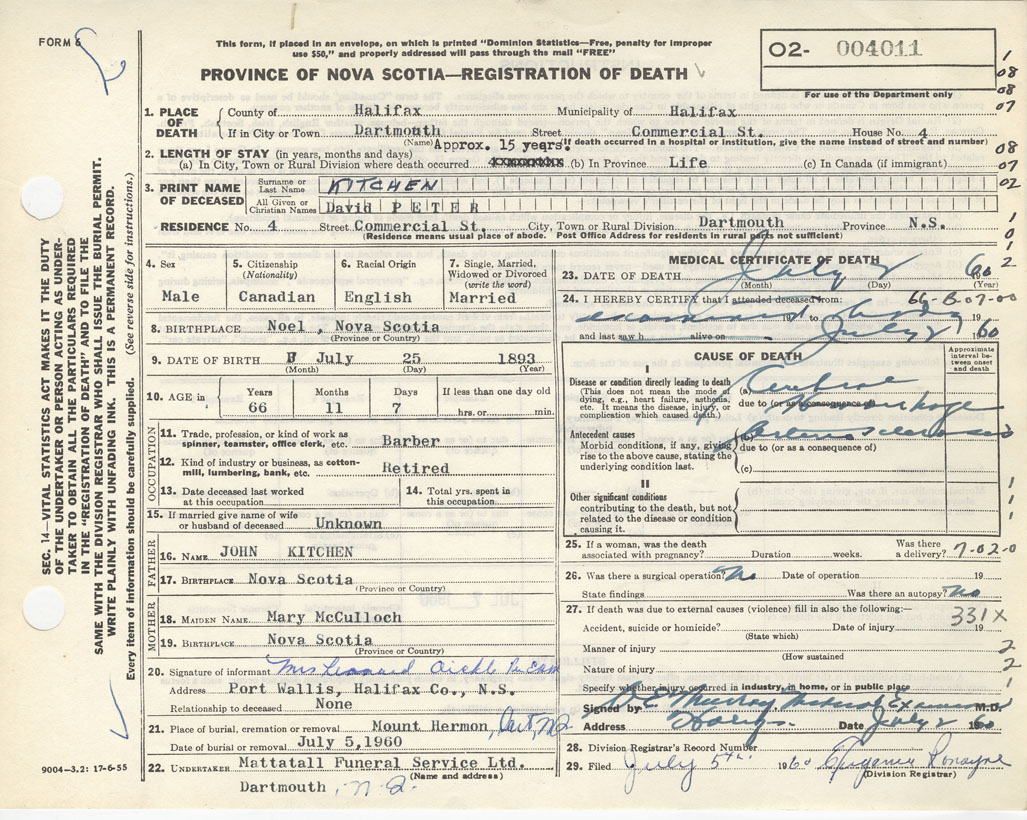 FORM 6
This form, if placed in an envelope, on which is printed "Dominion Statistics—Free, penalty for improper
use $50," and properly addressed will pass through the mail "FREE"
PROVINCE OF NOVA SCOTIA—REGISTRATION OF DEATH
02- 004011
For use of the Department only
1
08
08
07
08
07
02
1
0
1
2
1. PLACE OF DEATH
County of Halifax Municipality of Halifax
If in City or Town Dartmouth Street Commercial St. House No. 4
(Name) (If death occurred in a hospital or institution, give the name instead of street and number)
2. LENGTH OF STAY (in years, months and days) Approx. 15 years.
(a) In City, Town or Rural Division where death occurred (b) In Province Life (c) In Canada (if immigrant)
3. PRINT NAME OF DECEASED
Surname or Last Name KITCHEN
All Given or Christian Names David PETER
RESIDENCE No. 4 Street Commercial St. City, Town or Rural Division Dartmouth Province N.S.
(Residence means usual place of abode. Post Office Address for residents in rural parts not sufficient)
4. Sex
Male
5. Citizenship
(Nationality)
Canadian
6. Racial Origin
English
7. Single, Married,
Widowed or Divorced
(write the word)
Married
8. BIRTHPLACE Noel, Nova Scotia
(Province or Country)
9. DATE OF BIRTH July 25 1893
(Month) (Day) (Year)
10. AGE in
Years Months Days If less than one day old
66 11 7 hrs. or min.
OCCUPATION
11. Trade, profession, or kind of work as
spinner, teamster, office clerk, etc. Barber
12. Kind of industry or business, as cotton-
mill, lumbering, bank, etc. Retired
13. Date deceased last worked
at this occupation
14. Total yrs. spent in
this occupation
15. If married give name of wife
or husband of deceased Unknown
FATHER
16. NAME JOHN KITCHEN
17. BIRTHPLACE Nova Scotia
(Province or Country)
MOTHER
18. MAIDEN NAME Mary McCulloch
19. BIRTHPLACE Nova Scotia
(Province or Country)
20. Signature of informant Mrs Leonard
Address Port Wallis, Halifax Co., N.S.
Relationship to deceased None
21. Place of burial, cremation or removal Mount Hermon, Dart, N.S.
Date of burial or removal July 5,1960
22. UNDERTAKER Mattatall Funeral Service Ltd.
(Name and address)
Dartmouth, N.S.
MEDICAL CERTIFICATE OF DEATH
23. DATE OF DEATH July 2 60
(Month) (Day) (Year)
24. I HEREBY CERTIFY that I attended deceased from:
66-B-07-00
examined body
19 to 19
and last saw h alive on July 2 1960
CAUSE OF DEATH
Approximate
interval be-
tween onset
and death
I
Disease or condition directly leading to death
(This does not mean the mode of
dying, e.g., heart failure, asthenia,
etc. It means the disease, injury, or
complication which caused death.)
(a) Cerebral
due to (or as consequence of)
Hemorrhage
Antecedent causes
Morbid conditions, if any, giving
rise to the above cause, stating the
underlying condition last.
(b) Arteriosclerosis
due to (or as a consequence of)
(c)
II
Other significant conditions
contributing to the death, but not
related to the disease or condition
causing it.
1
1
1
25. If a woman, was the death
associated with pregnancy? Duration weeks. Was there
a delivery? 7-02-0
26. Was there a surgical operation? No Date of operation 19
State findings Was there an autopsy? No
27. If death was due to external causes (violence) fill in also the following:—
331X
Accident, suicide or homicide? Date of injury 19
(State which)
Manner of injury 2
(How sustained)
Nature of injury 2
Specify whether injury occurred in industry, in home, or in public place 1
Signed by Murray Medical Examiner M.D.
Address Date July 2 1960
28. Division Registrar's Record Number
29. Filed July 5th. 1960 Eugenie Ronayne
(Division Registrar)
SEC. 14—VITAL STATISTICS ACT MAKES IT THE DUTY
OF THE UNDERTAKER OR PERSON ACTING AS UNDER-
TAKER TO OBTAIN ALL THE PARTICULARS REQUIRED
IN THE "REGISTRATION OF DEATH AND TO FILE THE
SAME WITH THE DIVISION REGISTRAR WHO SHALL ISSUE THE BURIAL PERMIT.
WRITE PLAINLY WITH UNFADING INK. THIS IS A PERMANENT RECORD.
Every item of information should be carefully supplied. (See reverse side for instructions.)
9004—3.2: 17-6-55